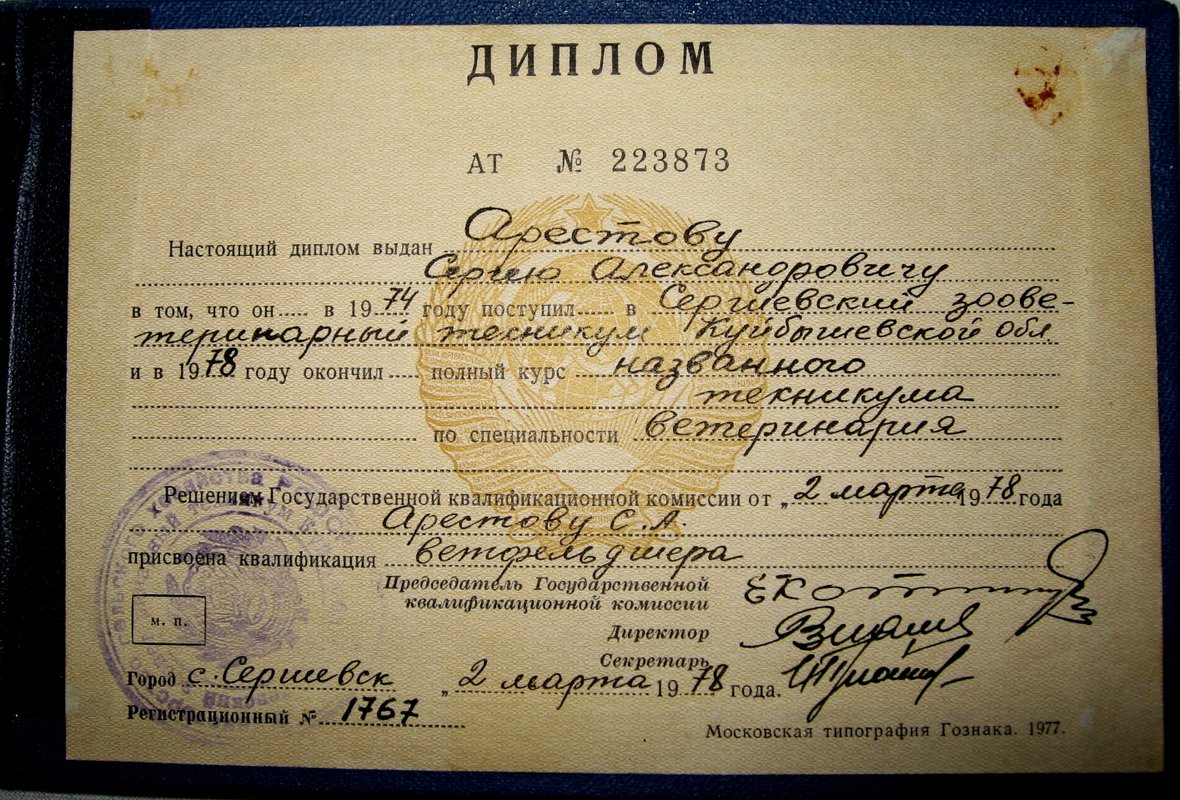 ДИПЛОМ
АТ № 223873
Настоящий диплом выдан Арестову
Сергею Александровичу
в том, что он в 1974 году поступил в Сергиевский зоове-
теринарный техникум Куйбышевской обл.
и в 1978 году окончил полный курс названного
техникума
по специальности ветеринария
Решением Государственной квалификационной комиссии от „2 марта 1978 года
Арестову С. А.
присвоена квалификация ветфельдшера
Председатель Государственной
квалификационной комиссии
Директор
Секретарь
м. п.
Город с. Сергиевск „2 марта 1978 года.
Регистрационный № 1767
Московская типография Гознака. 1977.